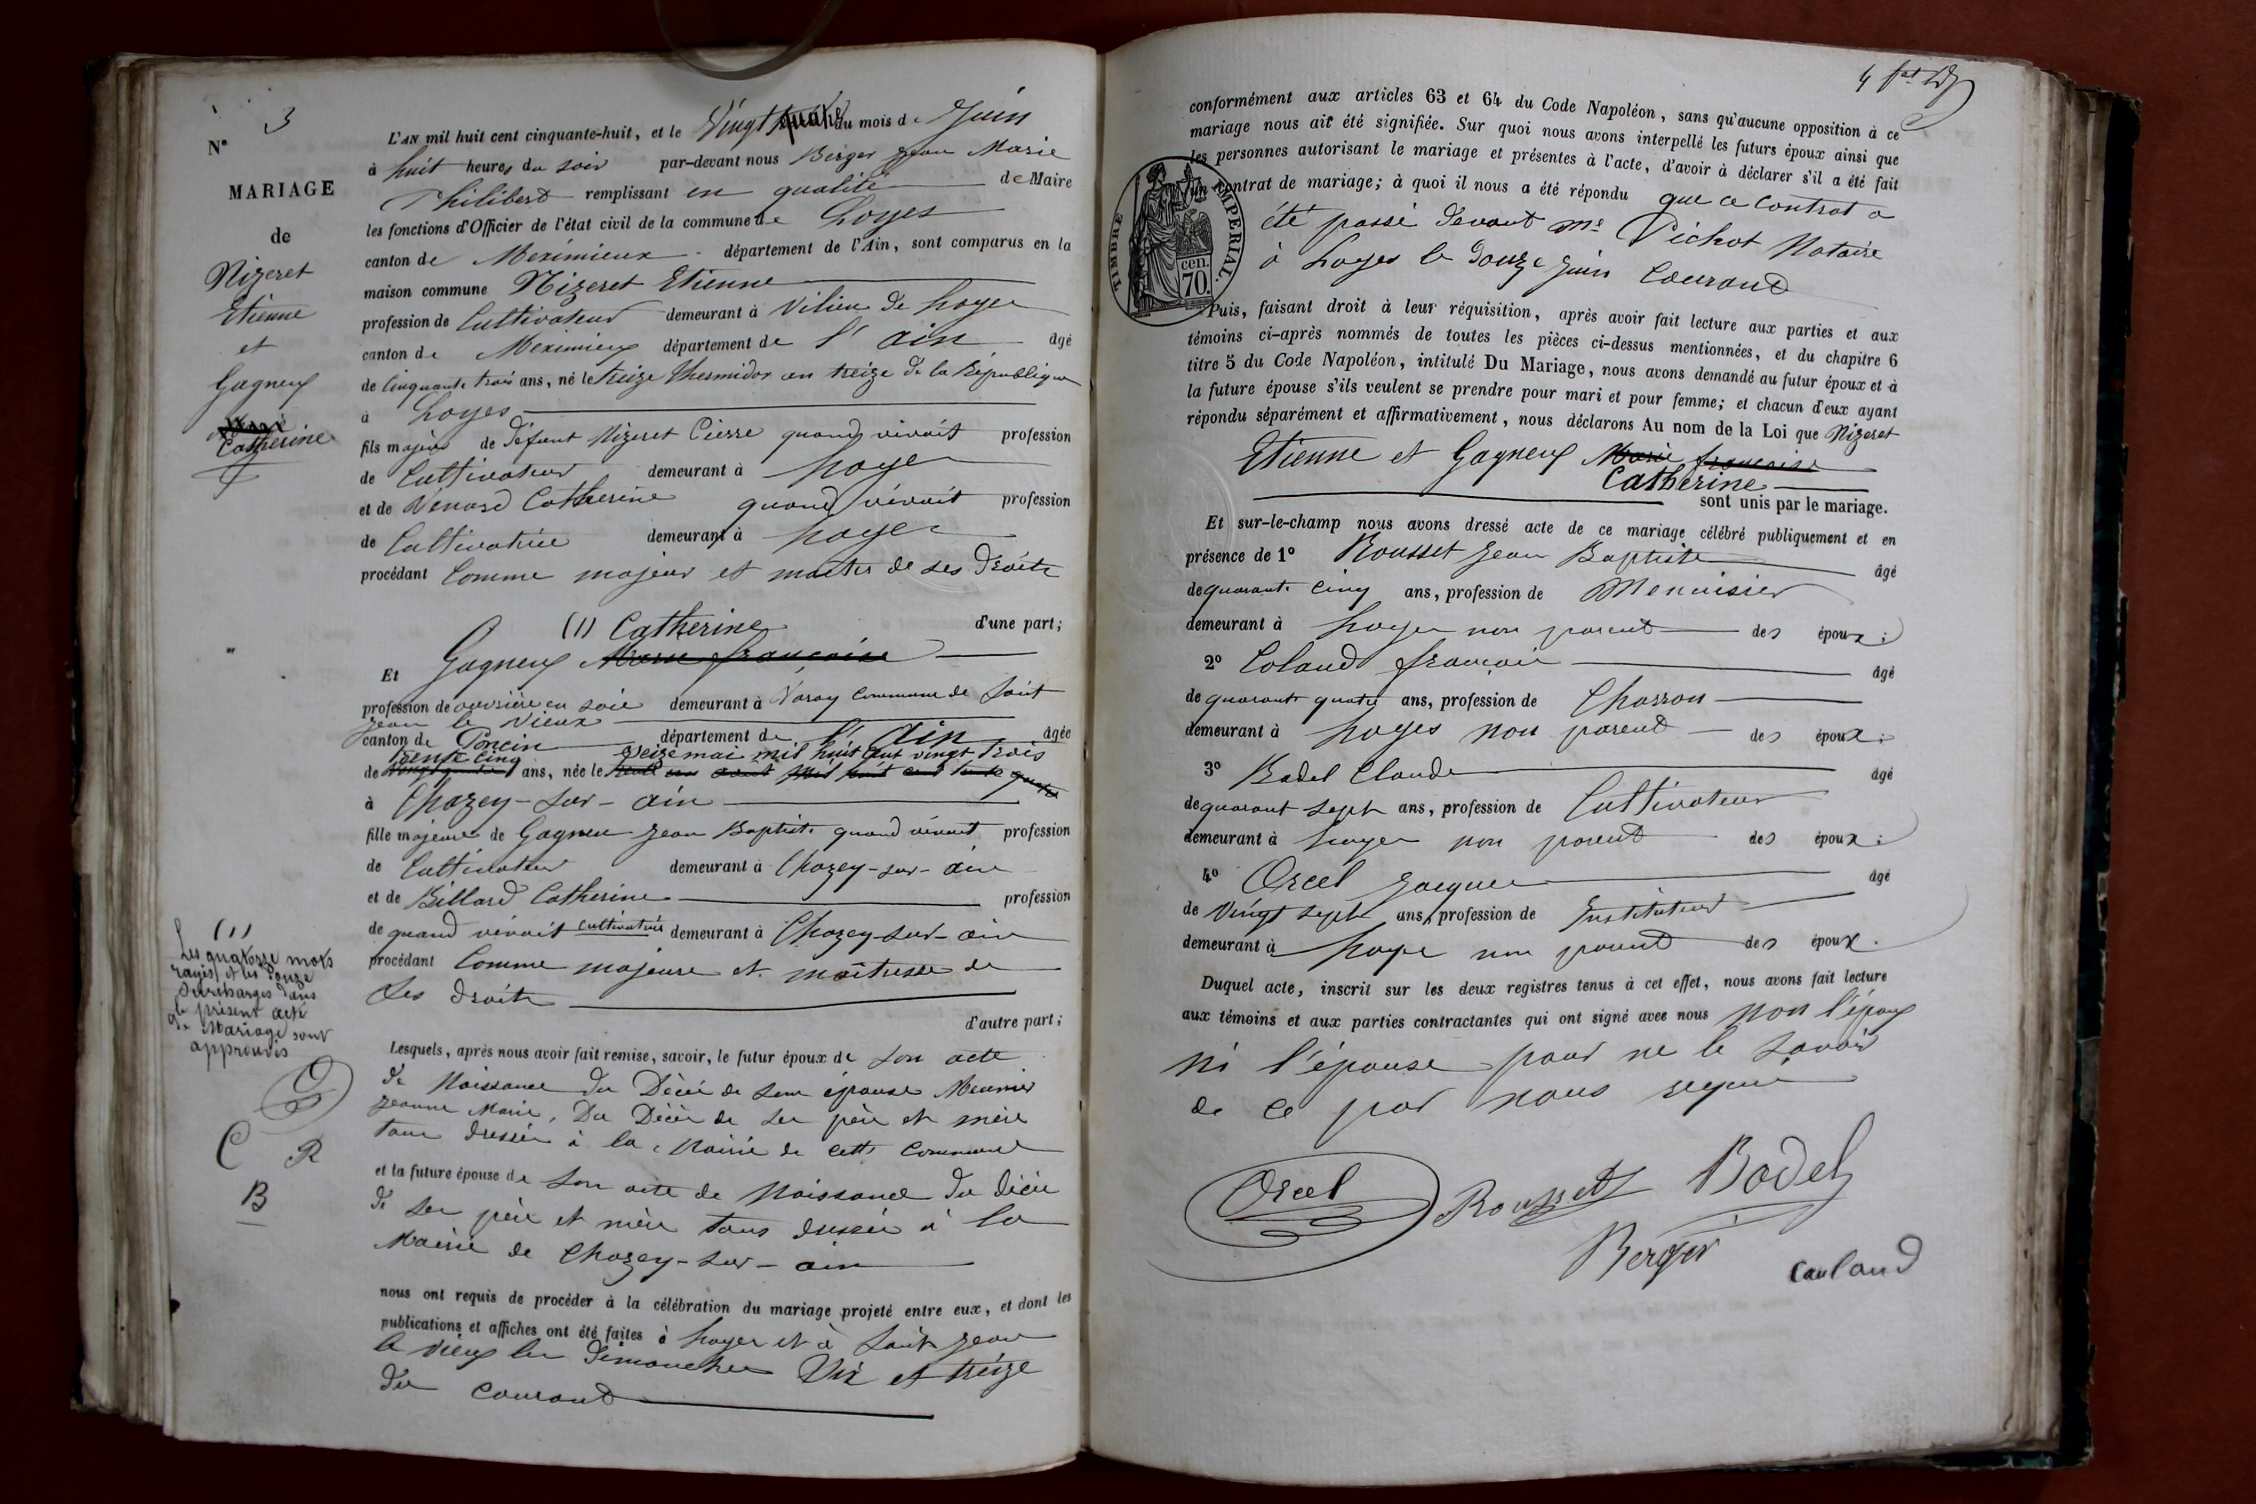 3
N°
MARIAGE
de
Nizeret
Etienne
et
Gagneux
Marie
Catherine
L'AN mil huit cent cinquante-huit, et le Vingt quatre du mois de Juin
à huit heures du soir par-devant nous Berger Jean Marie
Philibert remplissant en qualité de Maire
les fonctions d'Officier de l'état civil de la commune de Loyes
canton de Meximieux département de l'Ain, sont comparus en la
maison commune Nizeret Etienne
profession de Cultivateur demeurant à Vilieu de Loyes
canton de Meximieux département de l'ain âgé
de Cinquante trois ans, né le treize thermidor an treize de la République
à Loyes
fils majeur de défunt Nizeret Pierre quand vivait profession
de Cultivateur demeurant à Loyes
et de Vénard Catherine quand vivait profession
de Cultivatrice demeurant à Loyes
procédant Comme majeur et maitre de ses droits
d'une part;
(1) Catherine
Et Gagneux Marie françoise
profession de ouvrière en soie demeurant à Varay Commune de Saint
Jean le Vieux
canton de Poncin département de l'Ain âgée
trente cinq seize mai mil huit cent vingt trois
de ans, née le
à Chazey-sur-ain
fille majeure de Gagneu Jean Baptiste quand vivait profession
de Cultivateur demeurant à Chazey-sur-ain
et de Billard Catherine profession
de quand vivait Cultivatrice demeurant à Chazey-sur-ain
procédant Comme majeure et maitresse de
ses droits
d'autre part;
Lesquels, après nous avoir fait remise, savoir, le futur époux de son acte
de Naissance du Décès de son épouse Meunier
Jeanne Marie, Du Décès de ses père et mère
tous dressés à la Mairie de cette Commune
et la future épouse de son acte de Naissance du décès
de ses père et mère tous dressés à la
Mairie de Chazey-sur-ain
nous ont requis de procéder à la célébration du mariage projeté entre eux, et dont les
publications et affiches ont été faites à Loyes et à Saint Jean
le Vieux les dimanches Six et treize
du courant
(1)
Les quatorze mots
rayés et les douze
surchargés dans
le présent acte
de Mariage sont
approuvés
O
C R
B
conformément aux articles 63 et 64 du Code Napoléon, sans qu'aucune opposition à ce
mariage nous ait été signifiée. Sur quoi nous avons interpellé les futurs époux ainsi que
les personnes autorisant le mariage et présentes à l'acte, d'avoir à déclarer s'il a été fait
un contrat de mariage; à quoi il nous a été répondu que ce Contrat a
été passé devant Me Pichot Notaire
à Loyes le douze juin Courant
TIMBRE IMPERIAL.
cen.
70.
Puis, faisant droit à leur réquisition, après avoir fait lecture aux parties et aux
témoins ci-après nommés de toutes les pièces ci-dessus mentionnées, et du chapitre 6
titre 5 du Code Napoléon, intitulé Du Mariage, nous avons demandé au futur époux et à
la future épouse s'ils veulent se prendre pour mari et pour femme; et chacun d'eux ayant
répondu séparément et affirmativement, nous déclarons Au nom de la Loi que Nizeret
Etienne et Gagneux Marie françoise
Catherine
sont unis par le mariage.
Et sur-le-champ nous avons dressé acte de ce mariage célébré publiquement et en
présence de 1° Rousset Jean Baptiste âgé
de quarante cinq ans, profession de Menuisier
demeurant à Loyes non parent des époux;
2° Coland françois âgé
de quarante quatre ans, profession de Charron
demeurant à Loyes non parent des époux;
3° Badel Claude âgé
de quarant sept ans, profession de Cultivateur
demeurant à Loyes non parent des époux;
4° Orcel Jacques âgé
de Vingt sept ans, profession de Instituteur
demeurant à Loyes non parent des époux.
Duquel acte, inscrit sur les deux registres tenus à cet effet, nous avons fait lecture
aux témoins et aux parties contractantes qui ont signé avec nous non l'époux
ni l'épouse pour ne le savoir
de ce par nous requis
Orcel Rousset Badel
Berger Couland